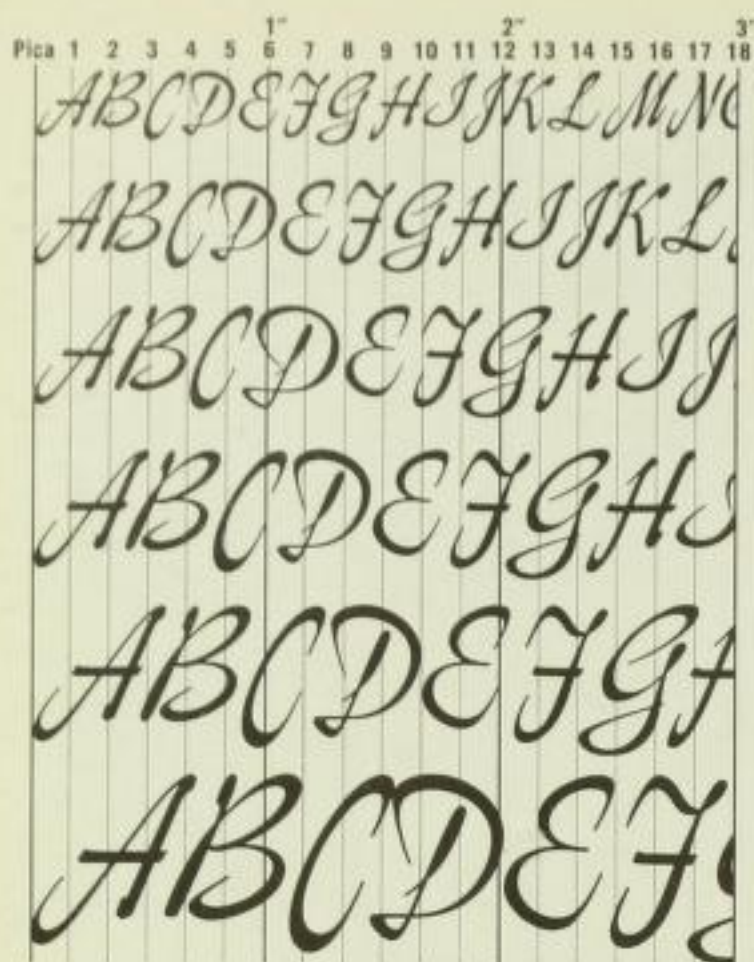 1" 2" 3"
Pica 1 2 3 4 5 6 7 8 9 10 11 12 13 14 15 16 17 18
ABCDEFGHIJKLMNO
ABCDEFGHIJKL
ABCDEFGHIJ
ABCDEFGHI
ABCDEFGH
ABCDEFG